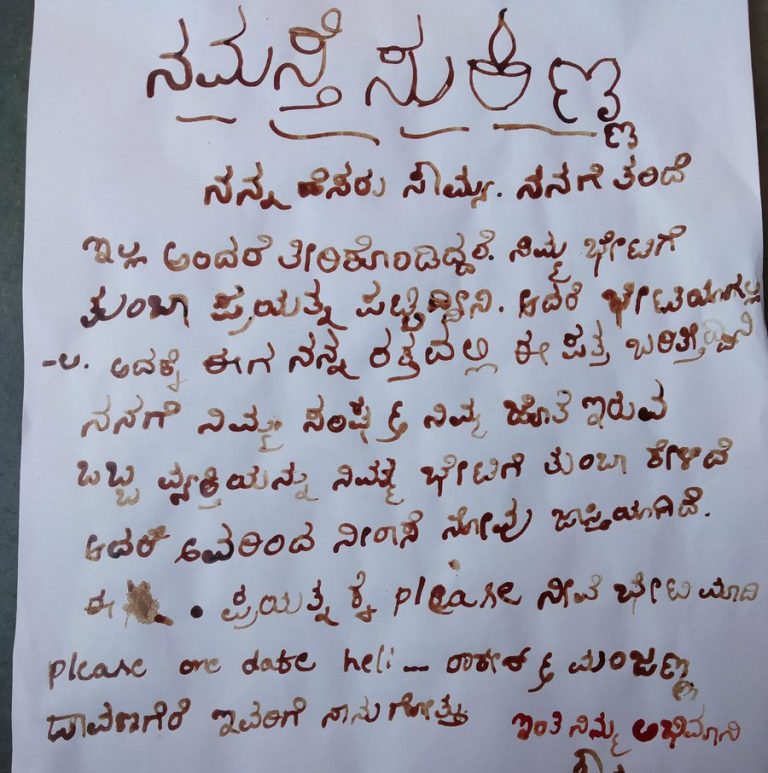 ನಮಸ್ತೆ ಸುಕಿಣ್ಣ
ನನ್ನ ಹೆಸರು ಸೌಮ್ಯ. ನನಗೆ ತಂದೆ
ಇಲ್ಲ ಅಂದರೆ ತೀರಿಕೊಂಡಿದ್ದಾರೆ. ನಿಮ್ಮ ಭೇಟಿಗೆ
ತುಂಬಾ ಪ್ರಯತ್ನ ಪಟ್ಟಿದ್ದೀನಿ. ಆದರೆ ಭೇಟಿಯಾಗಲ್ಲ
-ಲ. ಅದಕ್ಕೆ ಈಗ ನನ್ನ ರಕ್ತದಲ್ಲಿ ಈ ಪತ್ರ ಬರಿತ್ತಿದ್ದೀನಿ
ನನಗೆ ನಿಮ್ಮ ಸಂಪರ್ಕ ನಿಮ್ಮ ಜೊತೆ ಇರುವ
ಒಬ್ಬ ವ್ಯಕ್ತಿಯನ್ನು ನಿಮ್ಮ ಭೇಟಿಗೆ ತುಂಬಾ ಕೇಳಿದೆ
ಆದರೆ ಅವರಿಂದ ನೀರಾಸೆ ನೋವು ಜಾಸ್ತಿಯಾಗಿದೆ.
ಈ ಪ್ರಯತ್ನಕ್ಕೆ please ನೀವೆ ಭೇಟಿ ಮಾಡಿ
please one date heli
ದಾವಣಗೆರೆ ಇವರಿಗೆ ನಾನು ಗೋತ್ತು ಇಂತಿ ನಿಮ್ಮ ಅಭಿಮಾನಿ